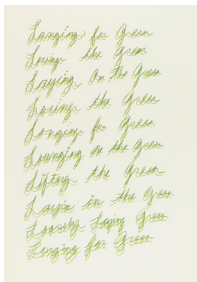 Longing for Green
Loving the Green
Laying on the Green
Loving the Green
Longing for Green
Lounging on the Green
Lifting the Green
Layin in the Green
Loosely Laying Green
Longing for Green